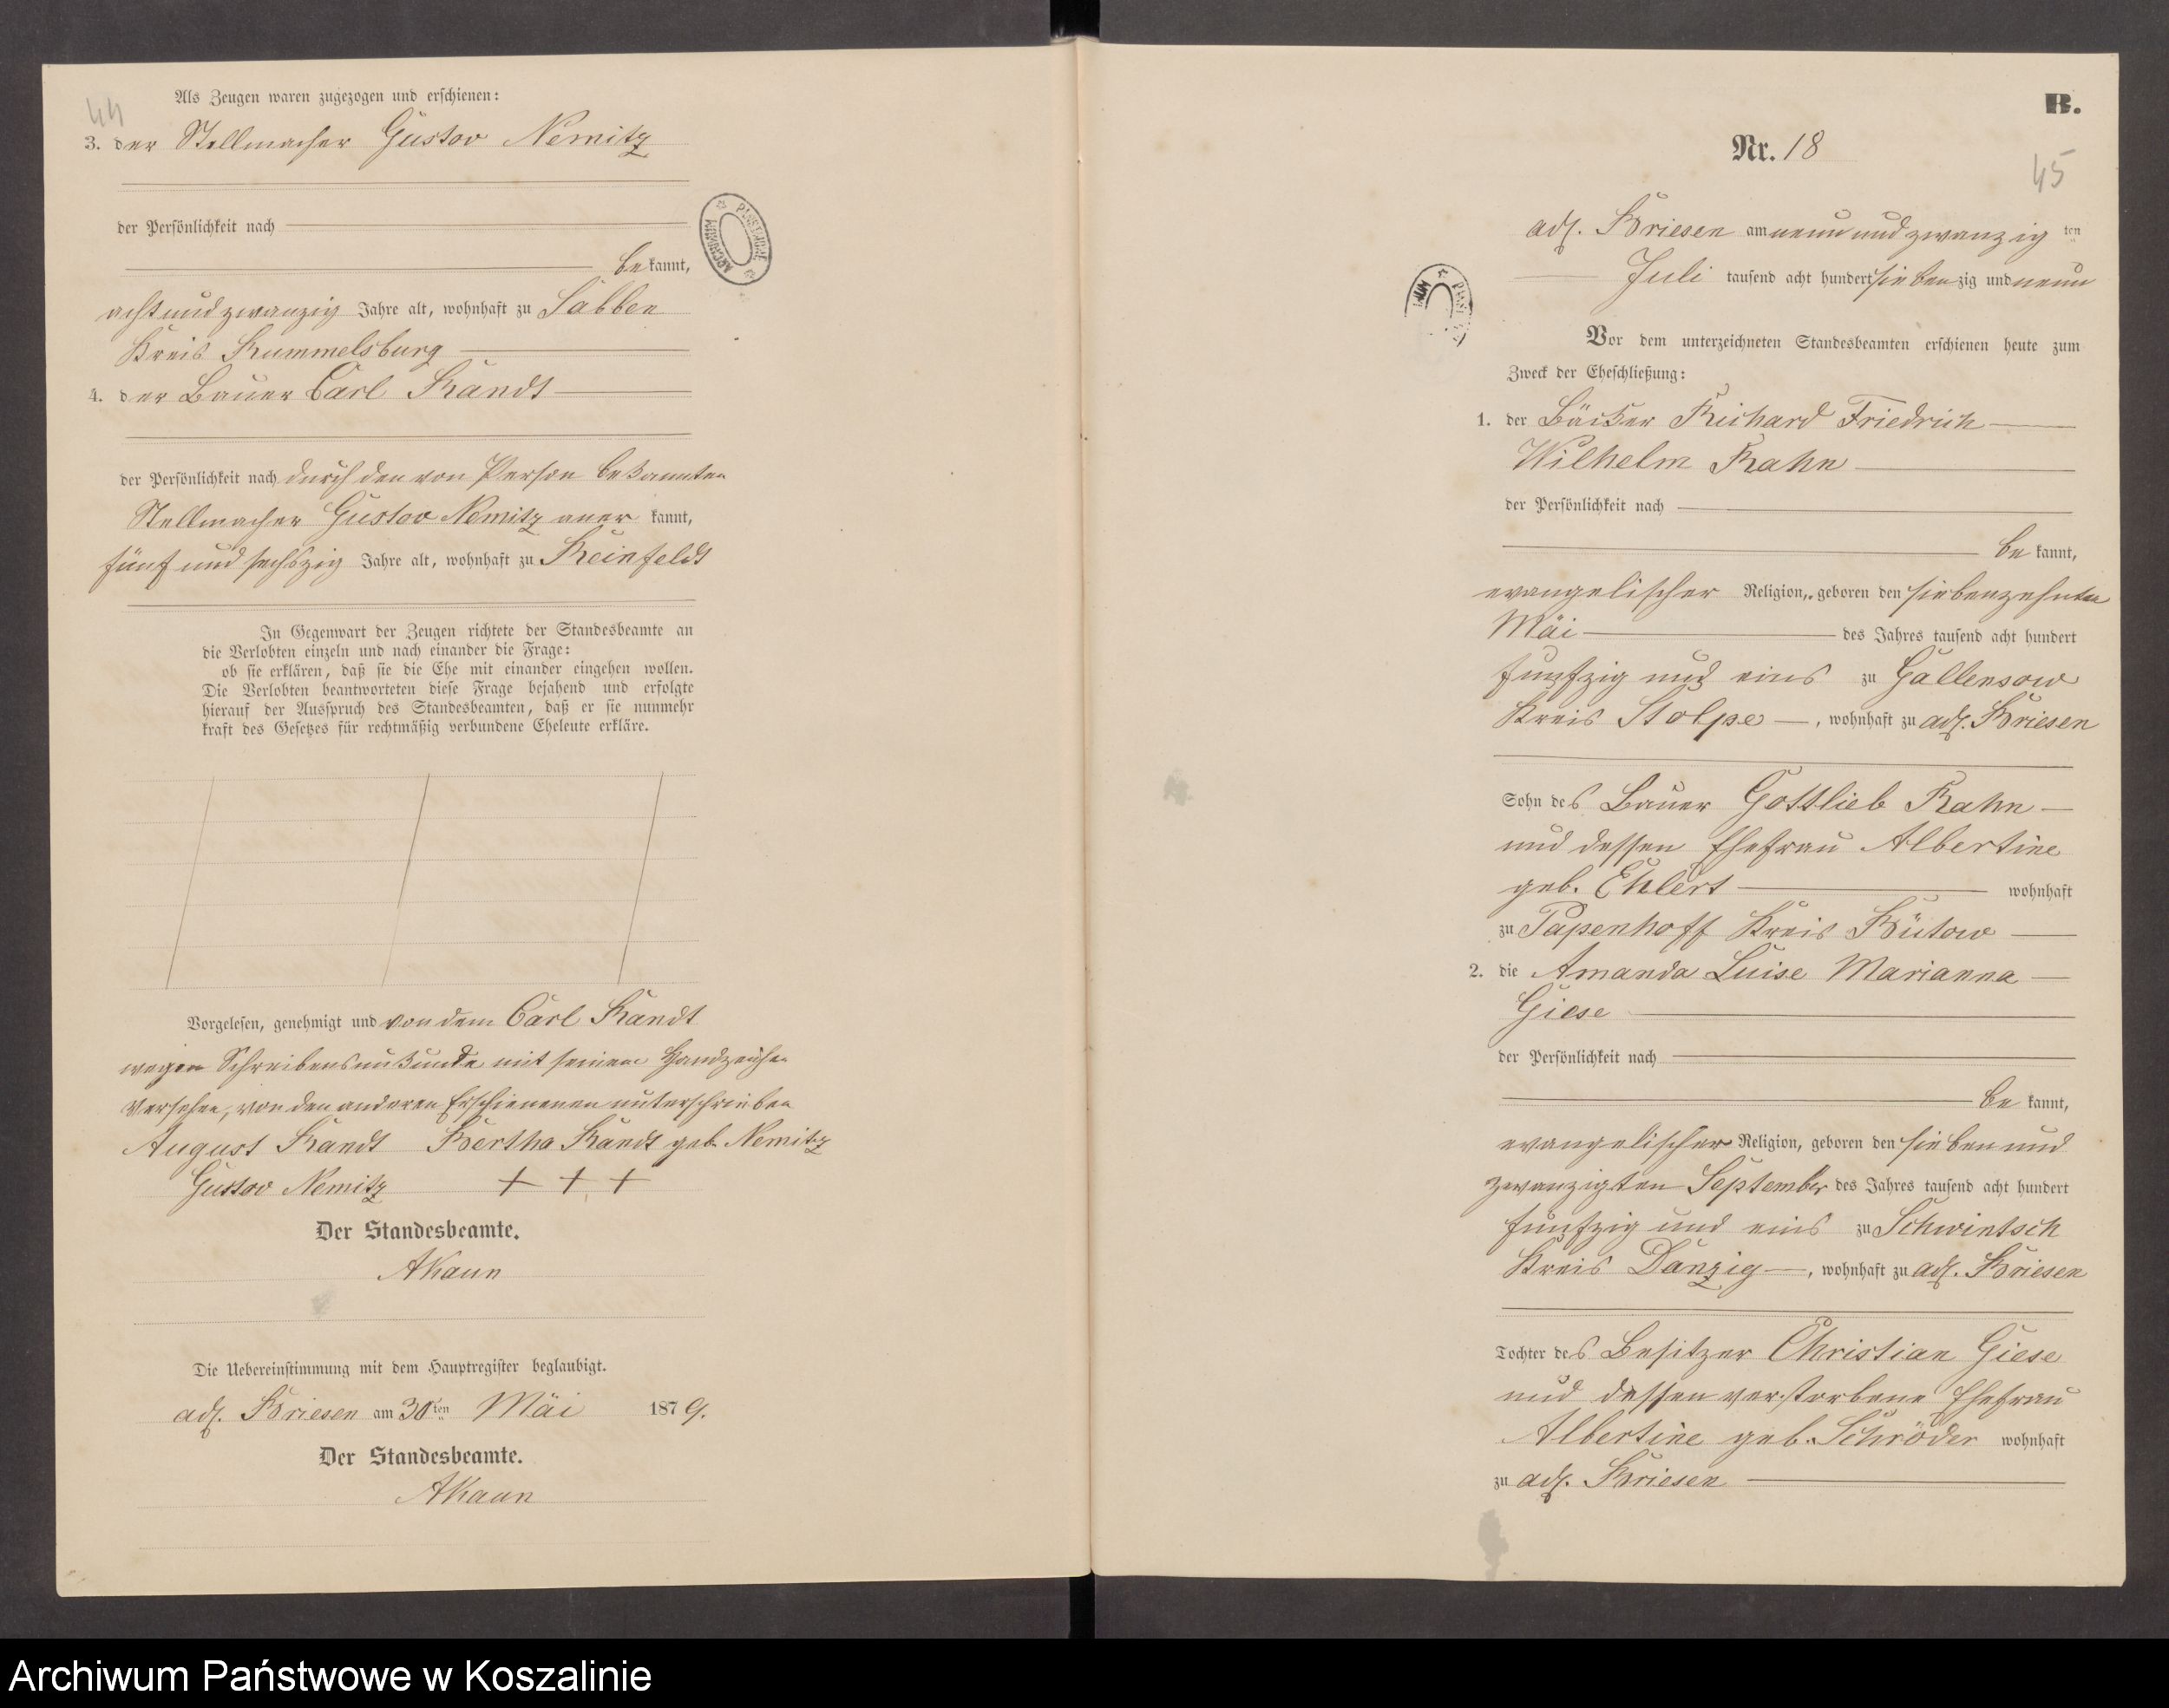 44
Als Zeugen waren zugezogen und erschienen:
3. der Stellmacher Gustav Nemitz
der Persönlichkeit nach
be kannt,
acht und zwanzig Jahre alt, wohnhaft zu Sabben
Kreis Rummelsburg
4. der Bauer Carl Kandt
der Persönlichkeit nach durch den von Person bekannten
Stellmacher Gustav Nemitz aner kannt,
fünf und sechszig Jahre alt, wohnhaft zu Reinfeldt
In Gegenwart der Zeugen richtete der Standesbeamte an
die Verlobten einzeln und nach einander die Frage:
ob sie erklären, daß sie die Ehe mit einander eingehen wollen.
Die Verlobten beantworteten diese Frage bejahend und erfolgte
hierauf der Ausspruch des Standesbeamten, daß er sie nunmehr
kraft des Gesetzes für rechtmäßig verbundene Eheleute erkläre.
Vorgelesen, genehmigt und von dem Carl Kandt
wegen Schreibensunkunde mit seinem Handzeichen
versehen, von den anderen Erschienenen unterschrieben
August Kandt Bertha Kandt geb. Nemitz
Gustav Nemitz + + +
Der Standesbeamte.
AKaun
Die Uebereinstimmung mit dem Hauptregister beglaubigt.
adl. Briesen am 30ten Mai 1879.
Der Standesbeamte.
AKaun
B.
Nr. 18
45
adl. Briesen am neun und zwanzig ten
Juli tausend acht hundert siebenzig und neun
Vor dem unterzeichneten Standesbeamten erschienen heute zum
Zweck der Eheschließung:
1. der Bäcker Richard Friedrich
Wilhelm Rahn
der Persönlichkeit nach
be kannt,
evangelischer Religion, geboren den siebenzehnten
Mai des Jahres tausend acht hundert
funfzig und eins zu Gallensow
Kreis Stolpe, wohnhaft zu adl. Briesen
Sohn des Bauer Gottlieb Rahn
und dessen Ehefrau Albertine
geb. Ehlert wohnhaft
zu Papenhoff Kreis Bütow
2. die Amanda Luise Marianna
Giese
der Persönlichkeit nach
be kannt,
evangelischer Religion, geboren den sieben und
zwanzigten September des Jahres tausend acht hundert
funfzig und eins zu Schwintsch
Kreis Danzig, wohnhaft zu adl. Briesen
Tochter des Besitzer Christian Giese
und dessen verstorbene Ehefrau
Albertine geb. Schröder wohnhaft
zu adl. Briesen
Archiwum Państwowe w Koszalinie